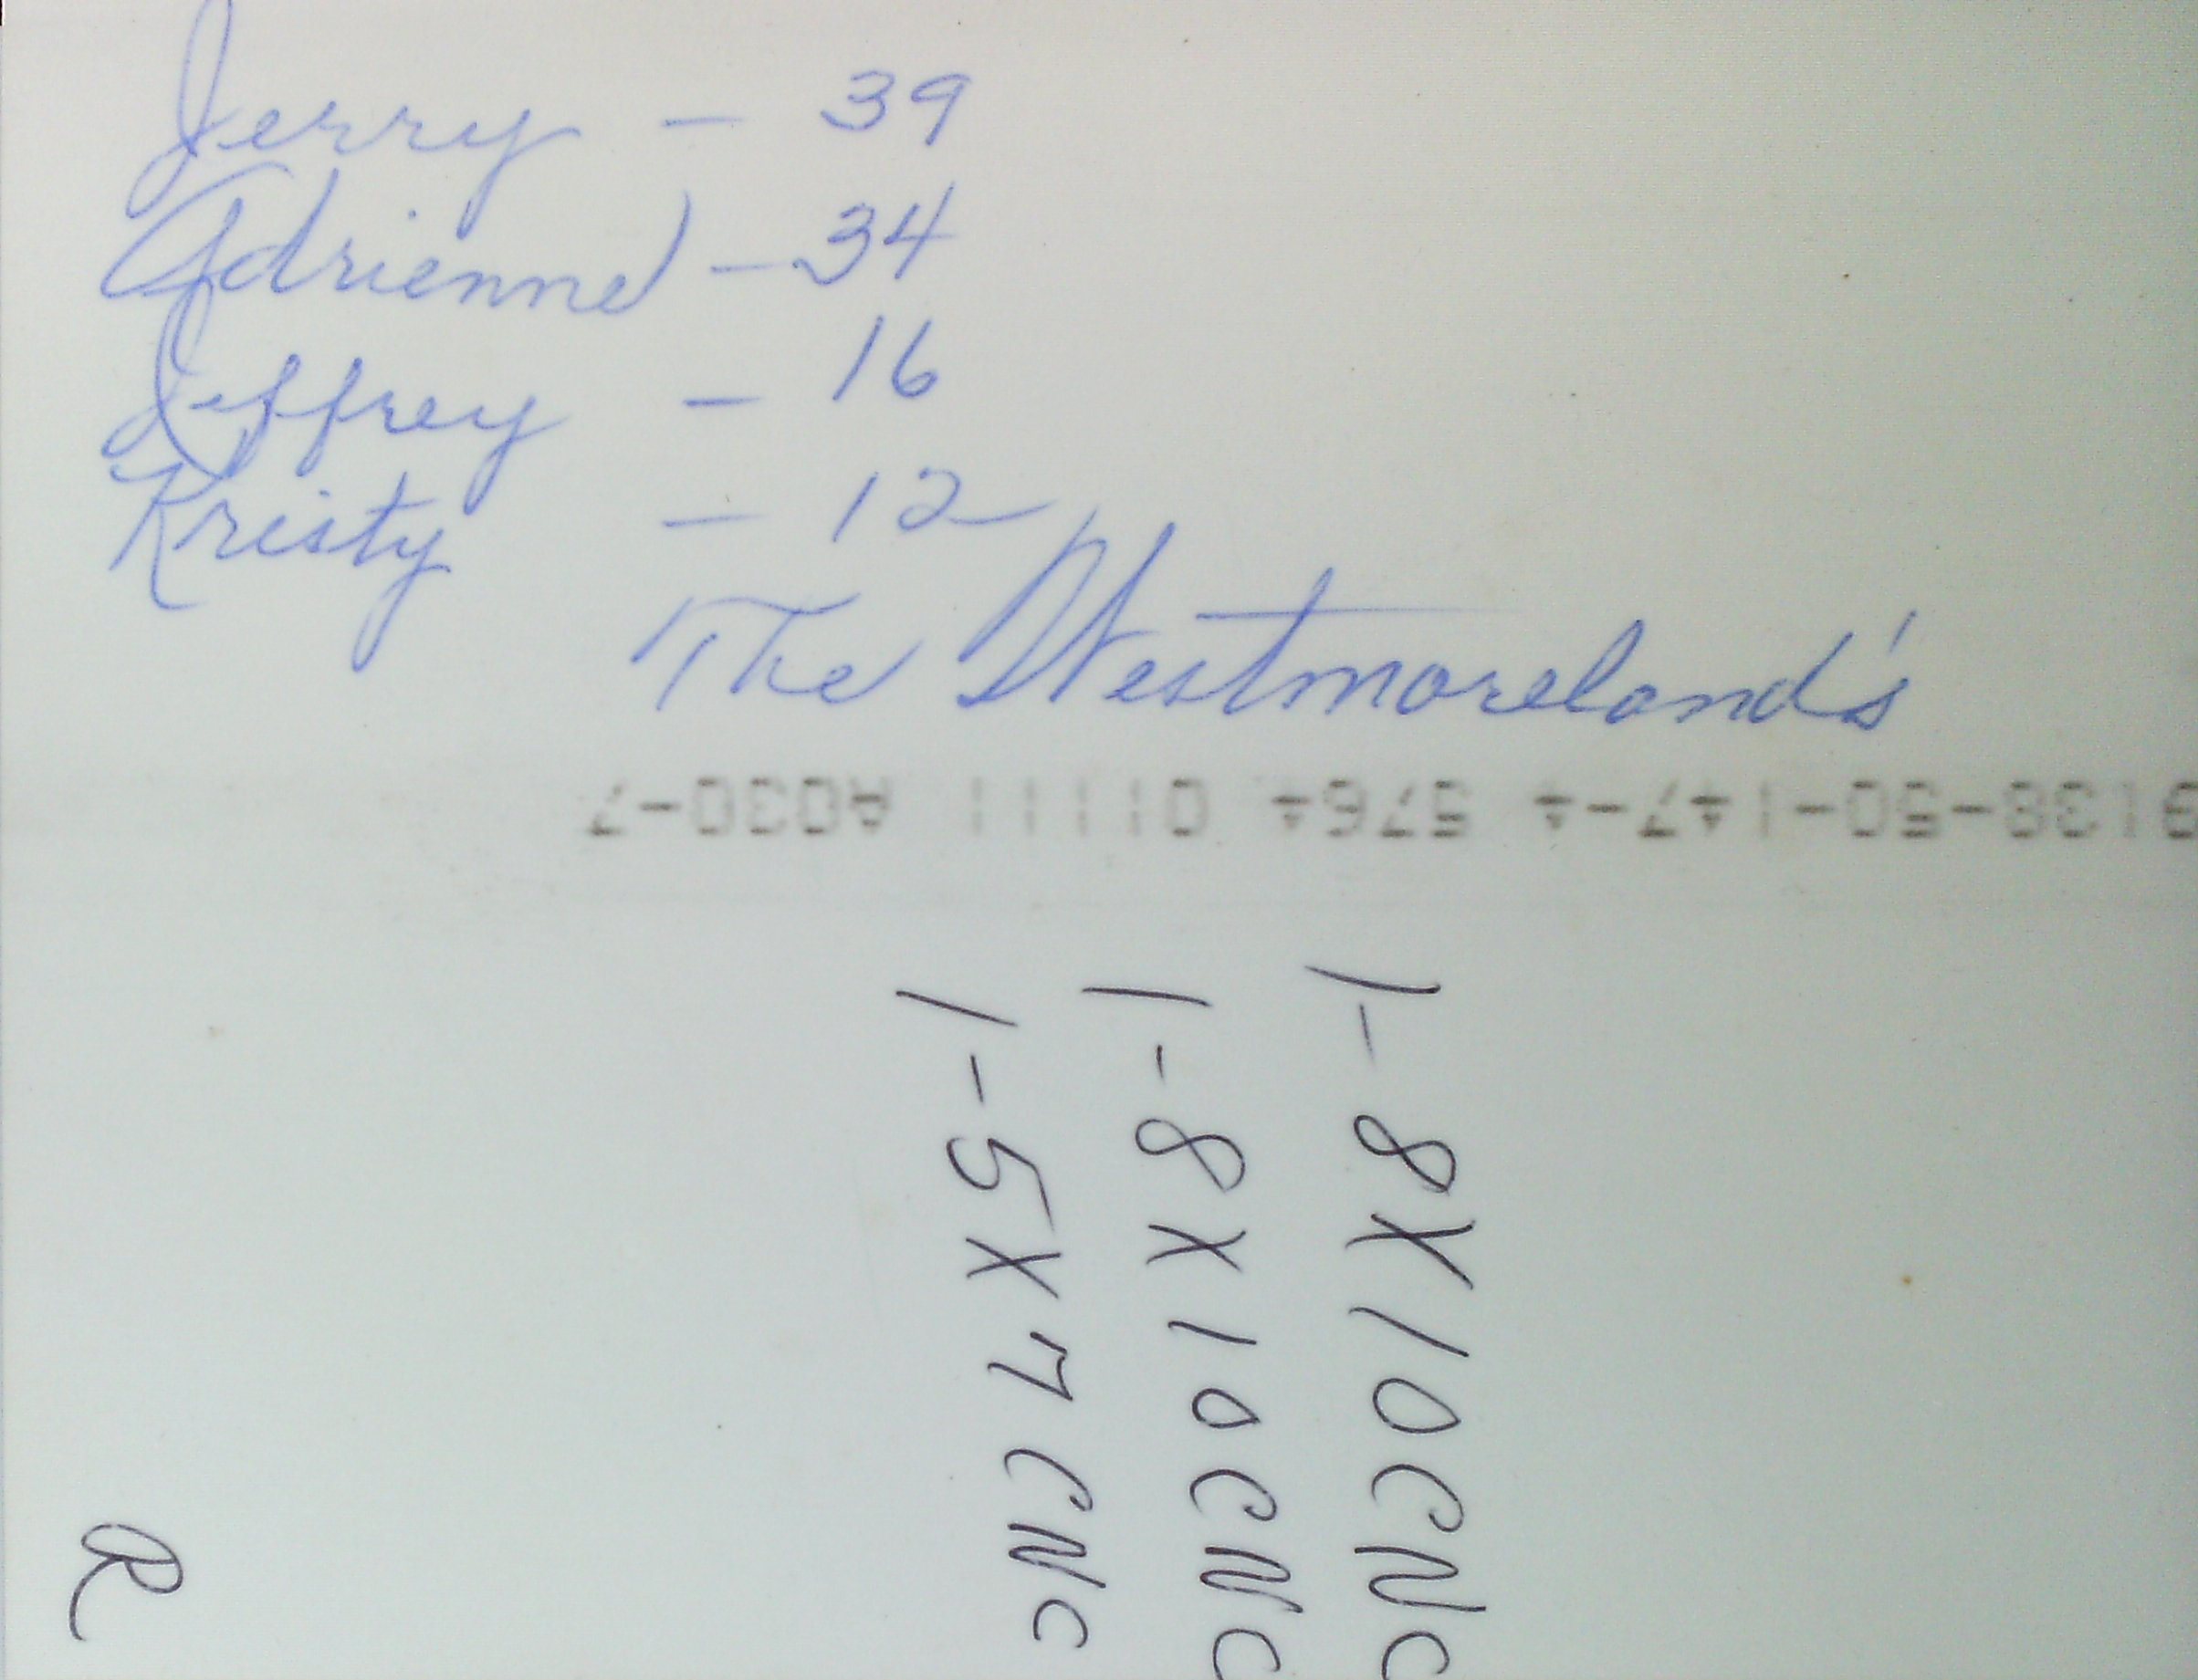 Jerry - 39
Adrienne - 34
Jeffrey - 16
Kristy - 12
The Westmoreland's
9138-50-147-4 5764 01111 A030-7
1-8X10CNC
1-8X10CNC
1-5X7CNC
R